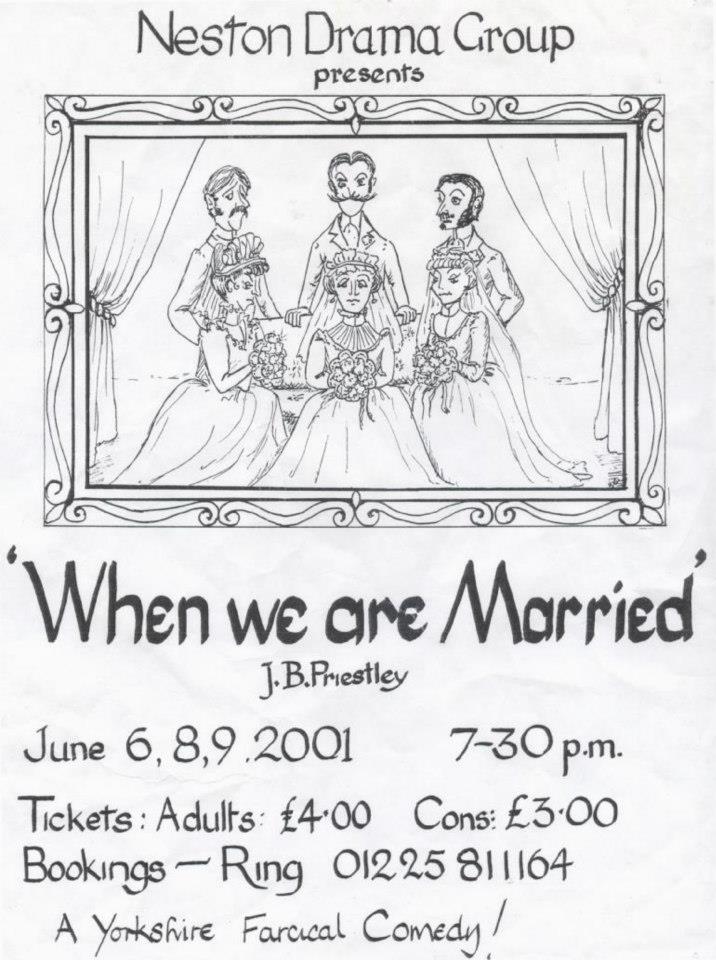 Neston Drama Group
presents
'When we are Married'
J.B.Priestley
June 6, 8, 9 . 2001 7-30 p.m.
Tickets: Adults: £4·00 Cons: £3·00
Bookings — Ring 01225 811164
A Yorkshire Farcical Comedy!